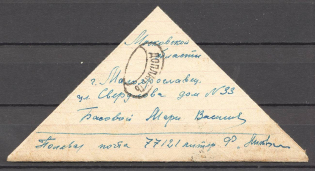 Московской
области
г. Малоярославец
ул Свердлова дом N 33
Базовой Мари Васил
Полевая почта 77121 литер Ф
ДОПЛАТ